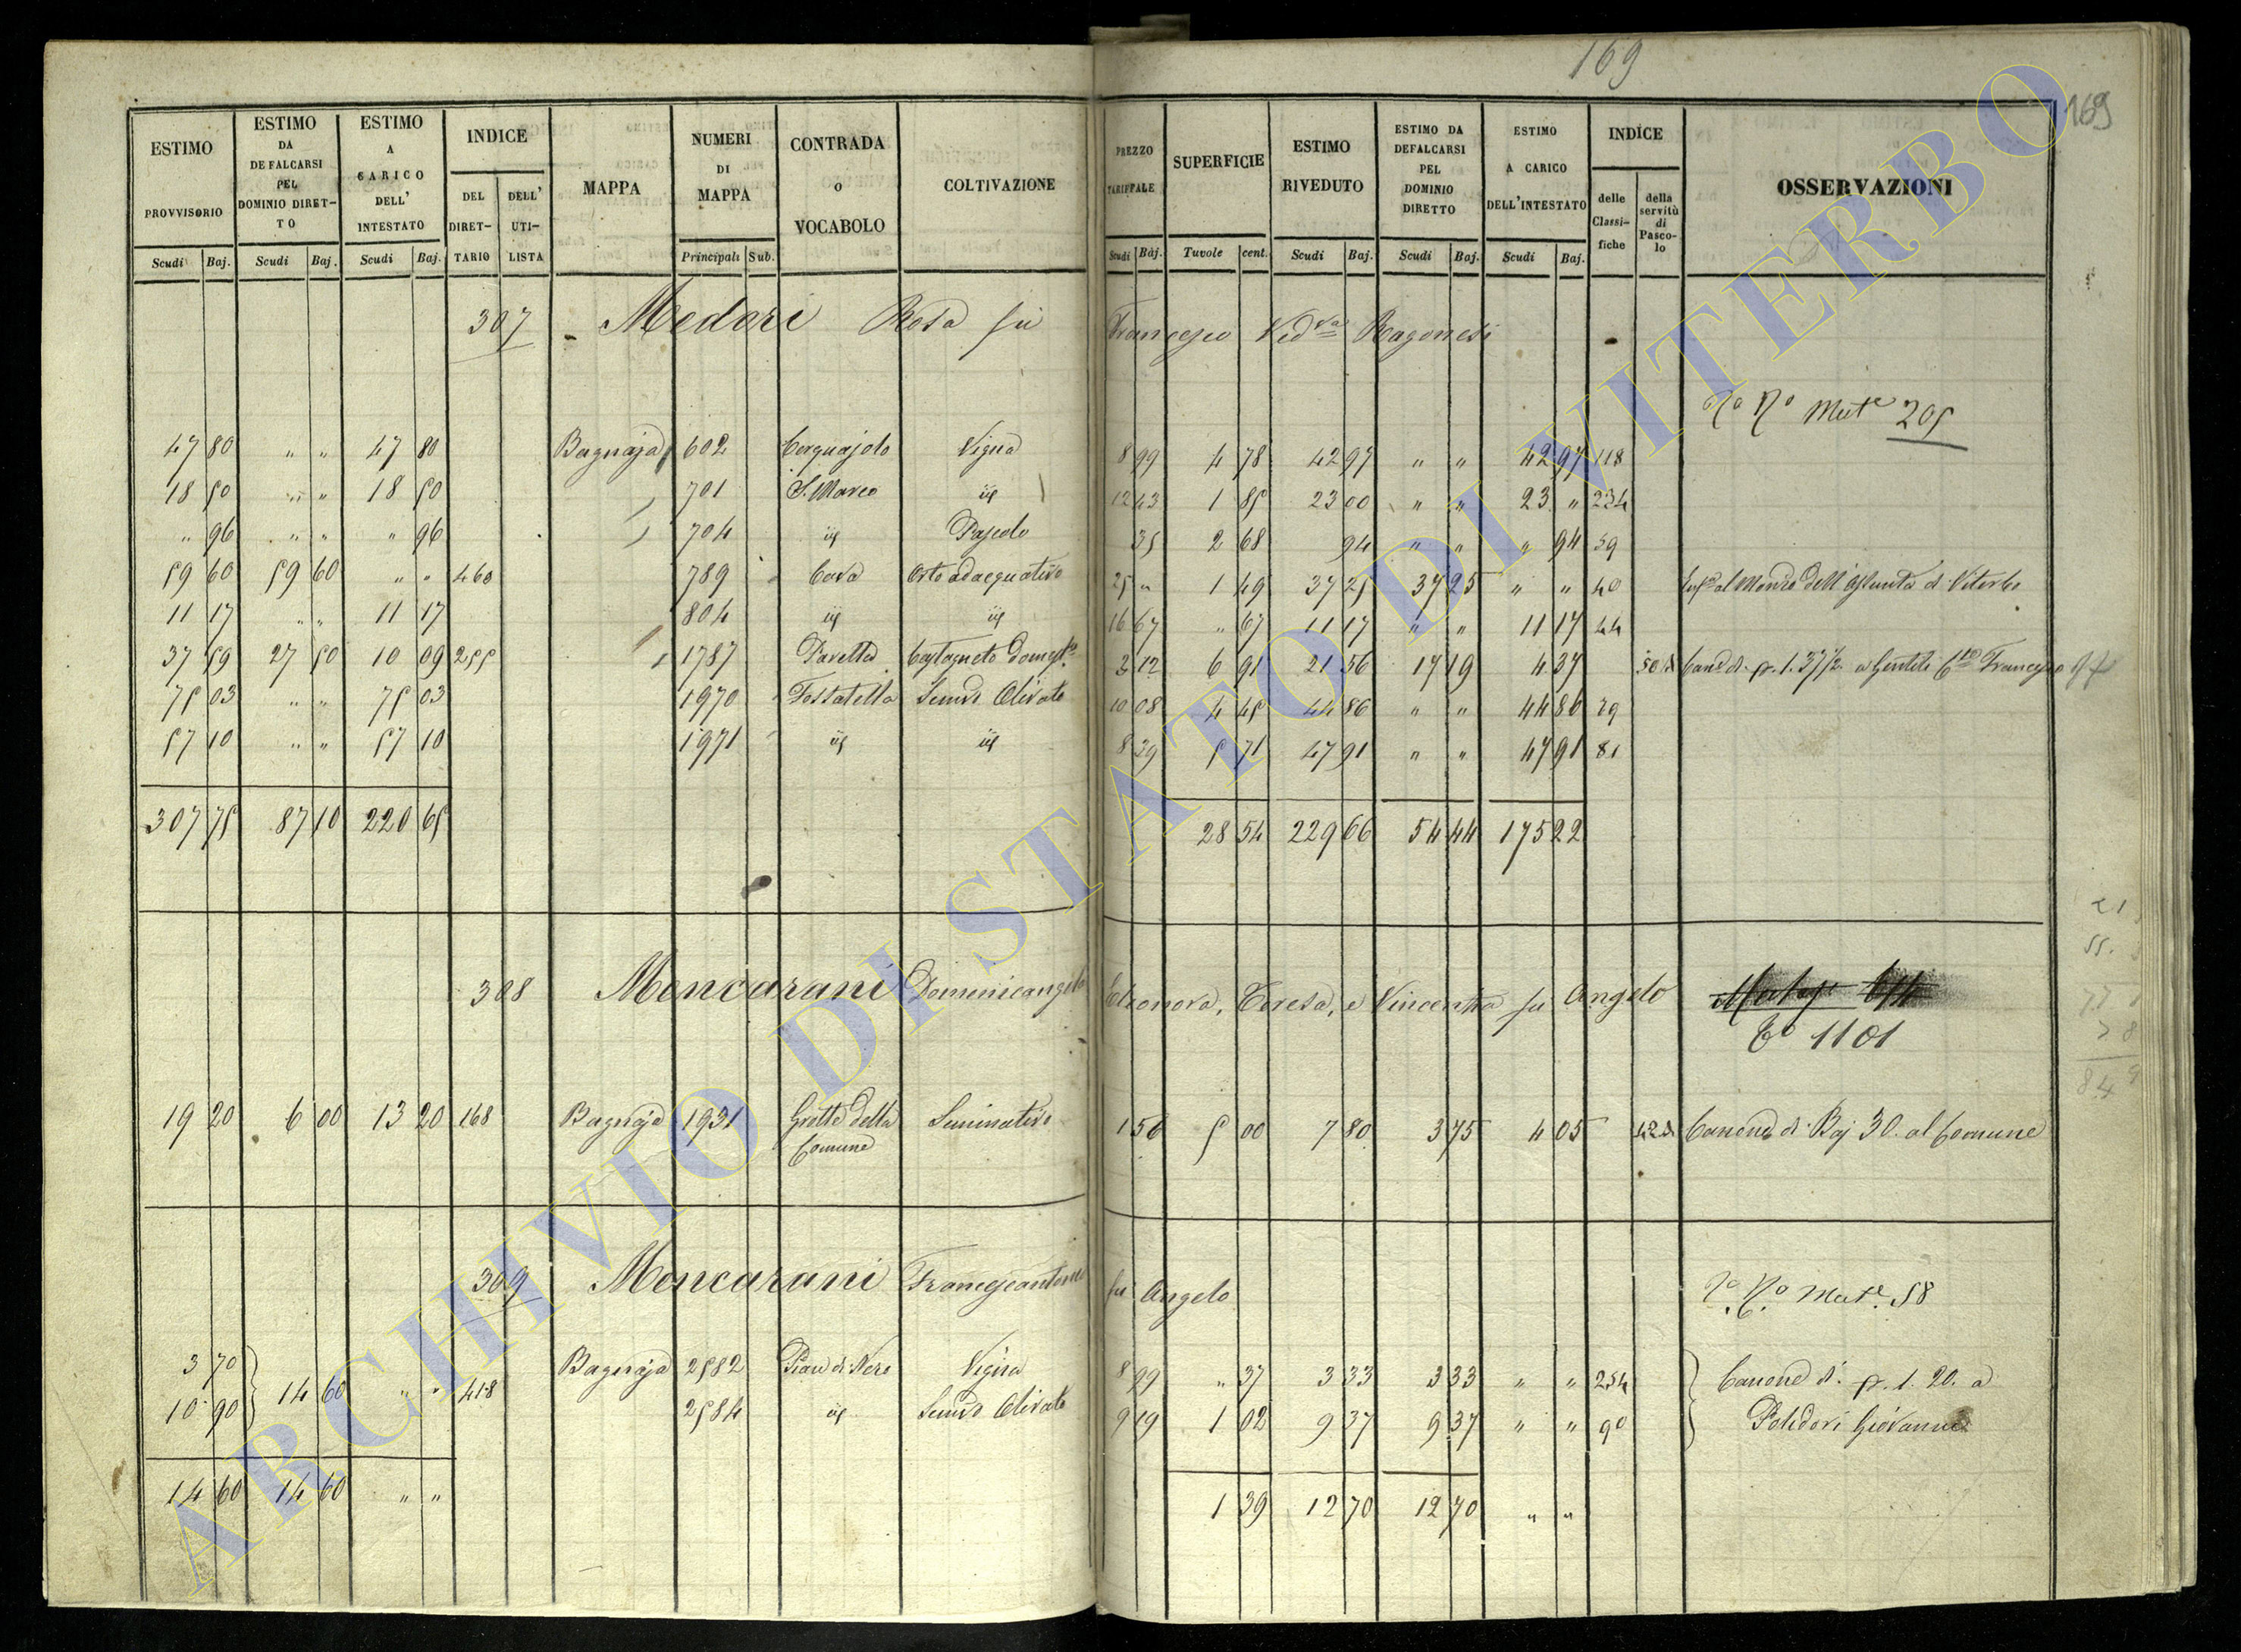 169
169
ESTIMO PROVVISORIO Scudi Baj.
ESTIMO DA DEFALCARSI PEL DOMINIO DIRET-TO Scudi Baj.
ESTIMO A CARICO DELL' INTESTATO Scudi Baj.
INDICE DEL DIRET-TARIO DELL' UTI-LISTA
MAPPA
NUMERI DI MAPPA Principali Sub.
CONTRADA O VOCABOLO
COLTIVAZIONE
PREZZO TARIFFALE Scudi Baj.
SUPERFICIE Tavole cent.
ESTIMO RIVEDUTO Scudi Baj.
ESTIMO DA DEFALCARSI PEL DOMINIO DIRETTO Scudi Baj.
ESTIMO A CARICO DELL'INTESTATO Scudi Baj.
INDICE delle Classi-fiche della servitù di Pasco-lo
OSSERVAZIONI
307 Medori Rosa fu Francesco Ved.va Ragonesi
Mut.e 205
47 80 " " 47 80 Bagnaja 602 Cerquajolo Vigna 8 99 4 78 42 97 " " 42 97 118
18 50 " " 18 50 701 S. Marco id 12 43 1 85 23 00 " " 23 " 234
" 96 " " " 96 704 id Pascolo 35 2 68 94 " " " 94 39
59 60 59 60 " " 460 789 Cava Orto adacquativo 25 " 1 49 37 25 37 25 " " 40 al Mon.ro dell'Assunta di Viterbo
11 17 " " 11 17 804 id id 16 67 " 67 11 17 " " 11 17 44
37 59 27 50 10 09 255 1787 Pavella Castagneto domest.o 3 12 6 91 21 56 17 19 4 37 50 Can.e di 1.37½ a Gentili Francesco
75 03 " " 75 03 1970 Fossatella Semvo Olivato 10 08 4 45 44 86 " " 44 86 79
57 10 " " 57 10 1971 id id 8 39 5 71 47 91 " " 47 91 81
307 75 87 10 220 65 28 54 229 66 54 44 175 22
308 Mencarani Domenicangelo Eleonora, Teresa, e Vincenza fu Angelo
1101
19 20 6 00 13 20 168 Bagnaja 1931 Grotte della Comune Seminativo 1 56 5 00 7 80 3 75 4 05 42 Canone di Baj 30. al Comune
309 Mencarani Francescantonio fu Angelo
Mut.e 58
3 70 Bagnaja 2582 Pian di Nero Vigna 8 99 " 37 3 33 3 33 " " 254 Canone di 1.20. a
10 90 14 60 " " 418 2584 id Semvo Olivato 9 19 1 02 9 37 9 37 " " 90 Polidori Giovanni
14 60 14 60 " " 1 39 12 70 12 70 " "
ARCHIVIO DI STATO DI VITERBO